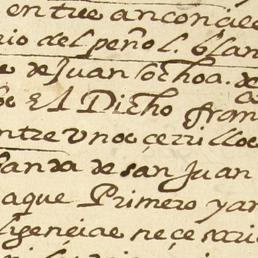 entre anconcie
rio del peño l. blan
e de Juan ochoa. de
El Dicho fran
entre Vnos cerrillos
banda de san Juan
aque Primero yan
ligençiae neçesari